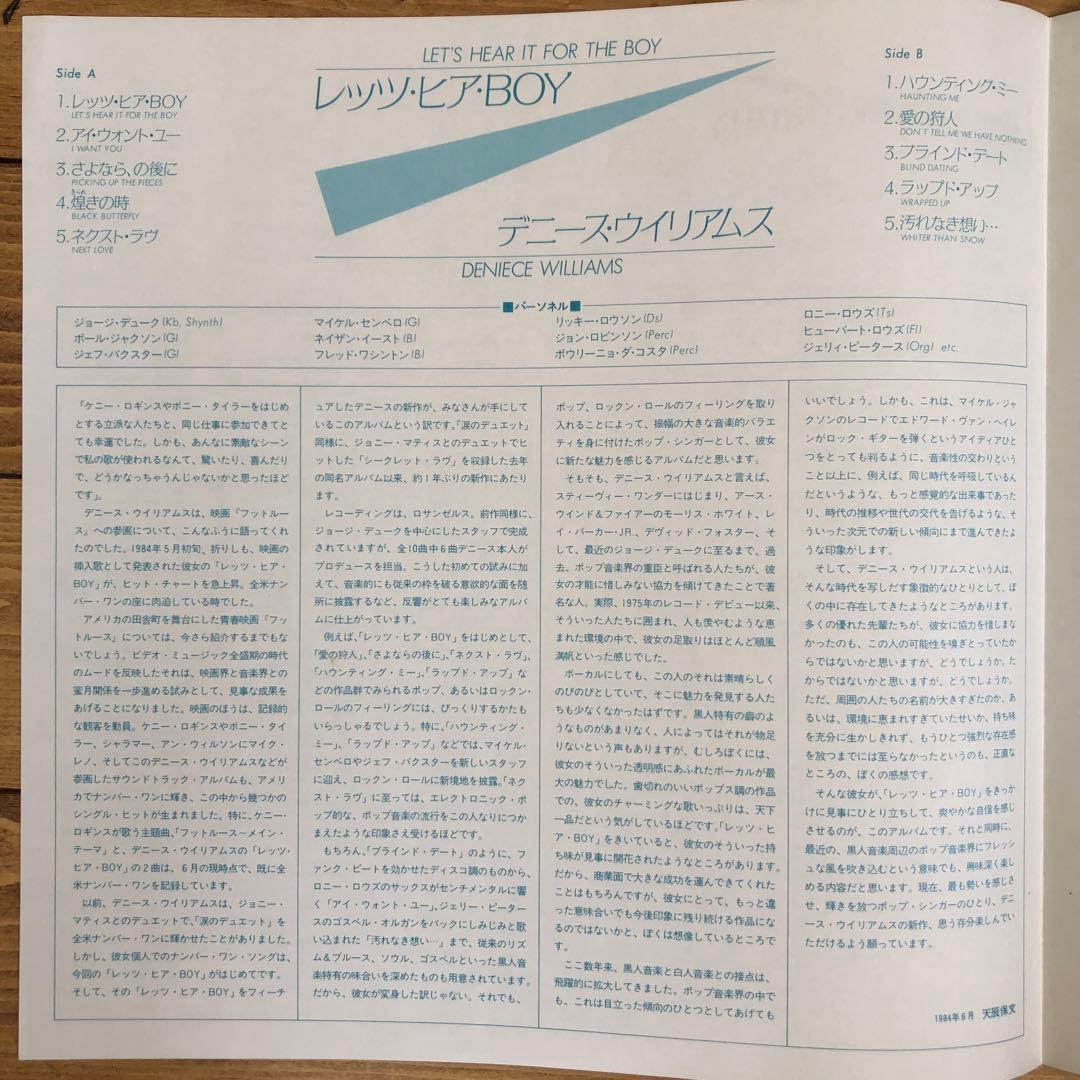 LET'S HEAR IT FOR THE BOY
レッツ・ヒア・BOY
デニース・ウイリアムス
DENIECE WILLIAMS
Side A
1.レッツ・ヒア・BOY
LET'S HEAR IT FOR THE BOY
2.アイ・ウォント・ユー
I WANT YOU
3.さよなら、の後に
PICKING UP THE PIECES
きらめ
4.煌きの時
BLACK BUTTERFLY
5.ネクスト・ラヴ
NEXT LOVE
Side B
1.ハウンティング・ミー
HAUNTING ME
2.愛の狩人
DON'T TELL ME WE HAVE NOTHING
3.ブラインド・デート
BLIND DATING
4.ラップド・アップ
WRAPPED UP
5.汚れなき想い…
WHITER THAN SNOW
■パーソネル■
ジョージ・デューク(Kb, Shynth)
ポール・ジャクソン(G)
ジェフ・バクスター(G)
マイケル・センベロ(G)
ネイザン・イースト(B)
フレッド・ワシントン(B)
リッキー・ロウソン(Ds)
ジョン・ロビンソン(Perc)
ポウリーニョ・ダ・コスタ(Perc)
ロニー・ロウズ(Ts)
ヒューバート・ロウズ(Fl)
ジェリィ・ピータース(Org) etc.
「ケニー・ロギンスやボニー・タイラーをはじめ
とする立派な人たちと、同じ仕事に参加できてと
ても幸運でした。しかも、あんなに素敵なシーン
で私の歌が使われるなんて、驚いたり、喜んだり
で、どうかなっちゃうんじゃないかと思ったほど
です」。
デニース・ウイリアムスは、映画『フットルー
ス』への参画について、こんなふうに語ってくれ
たのでした。1984年5月初旬、折りしも、映画の
挿入歌として発表された彼女の「レッツ・ヒア・
BOY」が、ヒット・チャートを急上昇。全米ナン
バー・ワンの座に肉迫している時でした。
アメリカの田舎町を舞台にした青春映画『フッ
トルース』については、今さら紹介するまでもな
いでしょう。ビデオ・ミュージック全盛期の時代
のムードを反映したそれは、映画界と音楽界との
蜜月関係を一歩進める試みとして、見事な成果を
あげることになりました。映画のほうは、記録的
な観客を動員。ケニー・ロギンスやボニー・タイ
ラー、シャラマー、アン・ウィルソンにマイク・
レノ、そしてこのデニース・ウイリアムスなどが
参画したサウンドトラック・アルバムも、アメリ
カでナンバー・ワンに輝き、この中から幾つかの
シングル・ヒットが生まれました。特に、ケニー・
ロギンスが歌う主題曲、「フットルース－メイン・
テーマ」と、デニース・ウイリアムスの「レッツ・
ヒア・BOY」の2曲は、6月の現時点で、既に全
米ナンバー・ワンを記録しています。
以前、デニース・ウイリアムスは、ジョニー・
マティスとのデュエットで、「涙のデュエット」を
全米ナンバー・ワンに輝かせたことがありました。
しかし、彼女個人でのナンバー・ワン・ソングは、
今回の「レッツ・ヒア・BOY」がはじめてです。
そして、その「レッツ・ヒア・BOY」をフィーチ
ュアしたデニースの新作が、みなさんが手にして
いるこのアルバムという訳です。「涙のデュエット」
同様に、ジョニー・マティスとのデュエットでヒ
ットした「シークレット・ラヴ」を収録した去年
の同名アルバム以来、約1年ぶりの新作にあたり
ます。
レコーディングは、ロサンゼルス。前作同様に、
ジョージ・デュークを中心にしたスタッフで完成
されていますが、全10曲中6曲デニース本人が
プロデュースを担当。こうした初めての試みに加
えて、音楽的にも従来の枠を破る意欲的な面を随
所に披露するなど、反響がとても楽しみなアルバ
ムに仕上がっています。
例えば、「レッツ・ヒア・BOY」をはじめとして、
「愛の狩人」、「さよならの後に」、「ネクスト・ラヴ」、
「ハウンティング・ミー」、「ラップド・アップ」な
どの作品群でみられるポップ、あるいはロックン・
ロールのフィーリングには、びっくりするかたも
いらっしゃるでしょう。特に、「ハウンティング・
ミー」、「ラップド・アップ」などでは、マイケル・
センベロやジェフ・バクスターを新しいスタッフ
に迎え、ロックン・ロールに新境地を披露。「ネク
スト・ラヴ」に至っては、エレクトロニック・ポ
ップ的な、ポップ音楽の流行をこの人なりにつか
まえたような印象さえ受けるほどです。
もちろん、「ブラインド・デート」のように、フ
ァンク・ビートを効かせたディスコ調のものから、
ロニー・ロウズのサックスがセンチメンタルに響
く「アイ・ウォント・ユー」、ジェリー・ピーター
スのゴスペル・オルガンをバックにしみじみと歌
い込まれた「汚れなき想い…」まで、従来のリズ
ム＆ブルース、ソウル、ゴスペルといった黒人音
楽特有の味合いを深めたものも用意されています。
だから、彼女が変身した訳じゃない。それでも、
ポップ、ロックン・ロールのフィーリングを取り
入れることによって、振幅の大きな音楽的バラエ
ティを身に付けたポップ・シンガーとして、彼女
に新たな魅力を感じるアルバムだと思います。
そもそも、デニース・ウイリアムスと言えば、
スティーヴィー・ワンダーにはじまり、アース・
ウインド＆ファイアーのモーリス・ホワイト、レ
イ・パーカーJR.、デヴィッド・フォスター、そ
して、最近のジョージ・デュークに至るまで、過
去、ポップ音楽界の重臣と呼ばれる人たちが、彼
女の才能に惜しみない協力を傾けてきたことで著
名な人。実際、1975年のレコード・デビュー以来、
そういった人たちに囲まれ、人も羨やむような恵
まれた環境の中で、彼女の足取りはほとんど順風
満帆といった感じでした。
ボーカルにしても、この人のそれは素晴らしく
のびのびとしていて、そこに魅力を発見する人た
ちも少なくなかったはずです。黒人特有の癖のよ
うなものがあまりなく、人によってはそれが物足
りないという声もありますが、むしろぼくには、
彼女のそういった透明感にあふれたボーカルが最
大の魅力でした。歯切れのいいポップス調の作品
での、彼女のチャーミングな歌いっぷりは、天下
一品だという気がしているほどです。「レッツ・ヒ
ア・BOY」をきいていると、彼女のそういった持
ち味が見事に開花されたようなところがあります。
だから、商業面で大きな成功を運んできてくれた
ことはもちろんですが、彼女にとって、もっと違
った意味合いでも今後印象に残り続ける作品にな
るのではないかと、ぼくは想像しているところで
す。
ここ数年来、黒人音楽と白人音楽との接点は、
飛躍的に拡大してきました。ポップ音楽界の中で
も、これは目立った傾向のひとつとしてあげても
いいでしょう。しかも、これは、マイケル・ジャ
クソンのレコードでエドワード・ヴァン・ヘイレ
ンがロック・ギターを弾くというアイディアひと
つをとっても判るように、音楽性の交わりという
こと以上に、例えば、同じ時代を呼吸しているん
だというような、もっと感覚的な出来事であった
り、時代の推移や世代の交代を告げるような、そ
ういった次元での新しい傾向にまで進んできたよ
うな印象がします。
そして、デニース・ウイリアムスという人は、
そんな時代を写しだす象徴的なひとりとして、ぼ
くの中に存在してきたようなところがあります。
多くの優れた先輩たちが、彼女に協力を惜しまな
かったのも、この人の可能性を嗅ぎとっていたか
らではないかと思いますが、どうでしょうか。た
からではないかと思いますが、どうでしょうか。
ただ、周囲の人たちの名前が大きすぎたのか、あ
るいは、環境に恵まれすぎていたせいか、持ち味
を充分に生かしきれず、もうひとつ強烈な存在感
を放つまでには至らなかったというのも、正直な
ところの、ぼくの感想です。
そんな彼女が、「レッツ・ヒア・BOY」をきっか
けに見事にひとり立ちして、爽やかな自信を感じ
させるのが、このアルバムです。それと同時に、
最近の、黒人音楽周辺のポップ音楽界にフレッシ
ュな風を吹き込むという意味でも、興味深く楽し
める内容だと思います。現在、最も勢いを感じさ
せ、輝きを放つポップ・シンガーのひとり、デニ
ース・ウイリアムスの新作、思う存分楽しんでい
ただけるよう願っています。
1984年6月 天辰保文